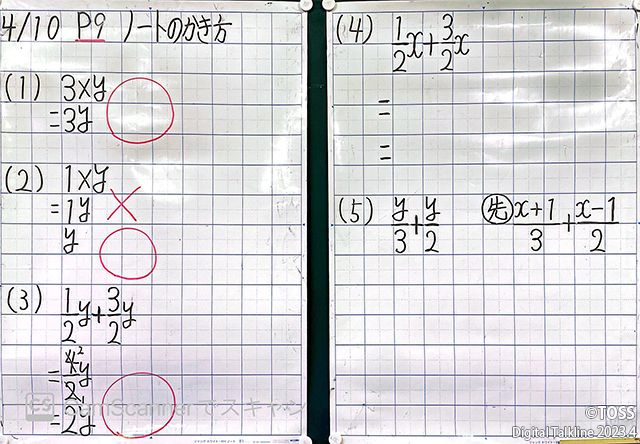 4/10 P9 ノートのかき方
(1) 3×y
=3y
(2) 1×y
=1y
y
(3) 1/2y+3/2y
=4²/2y
=2y
(4) 1/2x+3/2x
=
=
(5) y/3+y/2 先 x+1/3+x-1/2
CS CamScannerでスキャン
©TOSS
Digital Talkline 2023.4